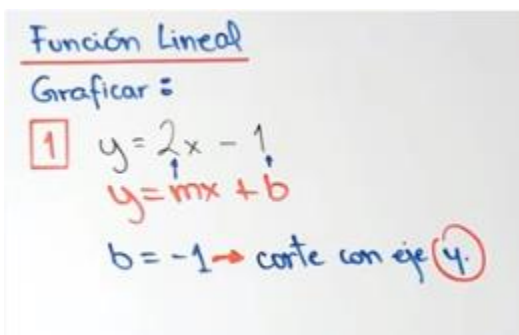 Función Lineal
Graficar:
1 y = 2x - 1
y = mx + b
b = -1 → corte con eje y.